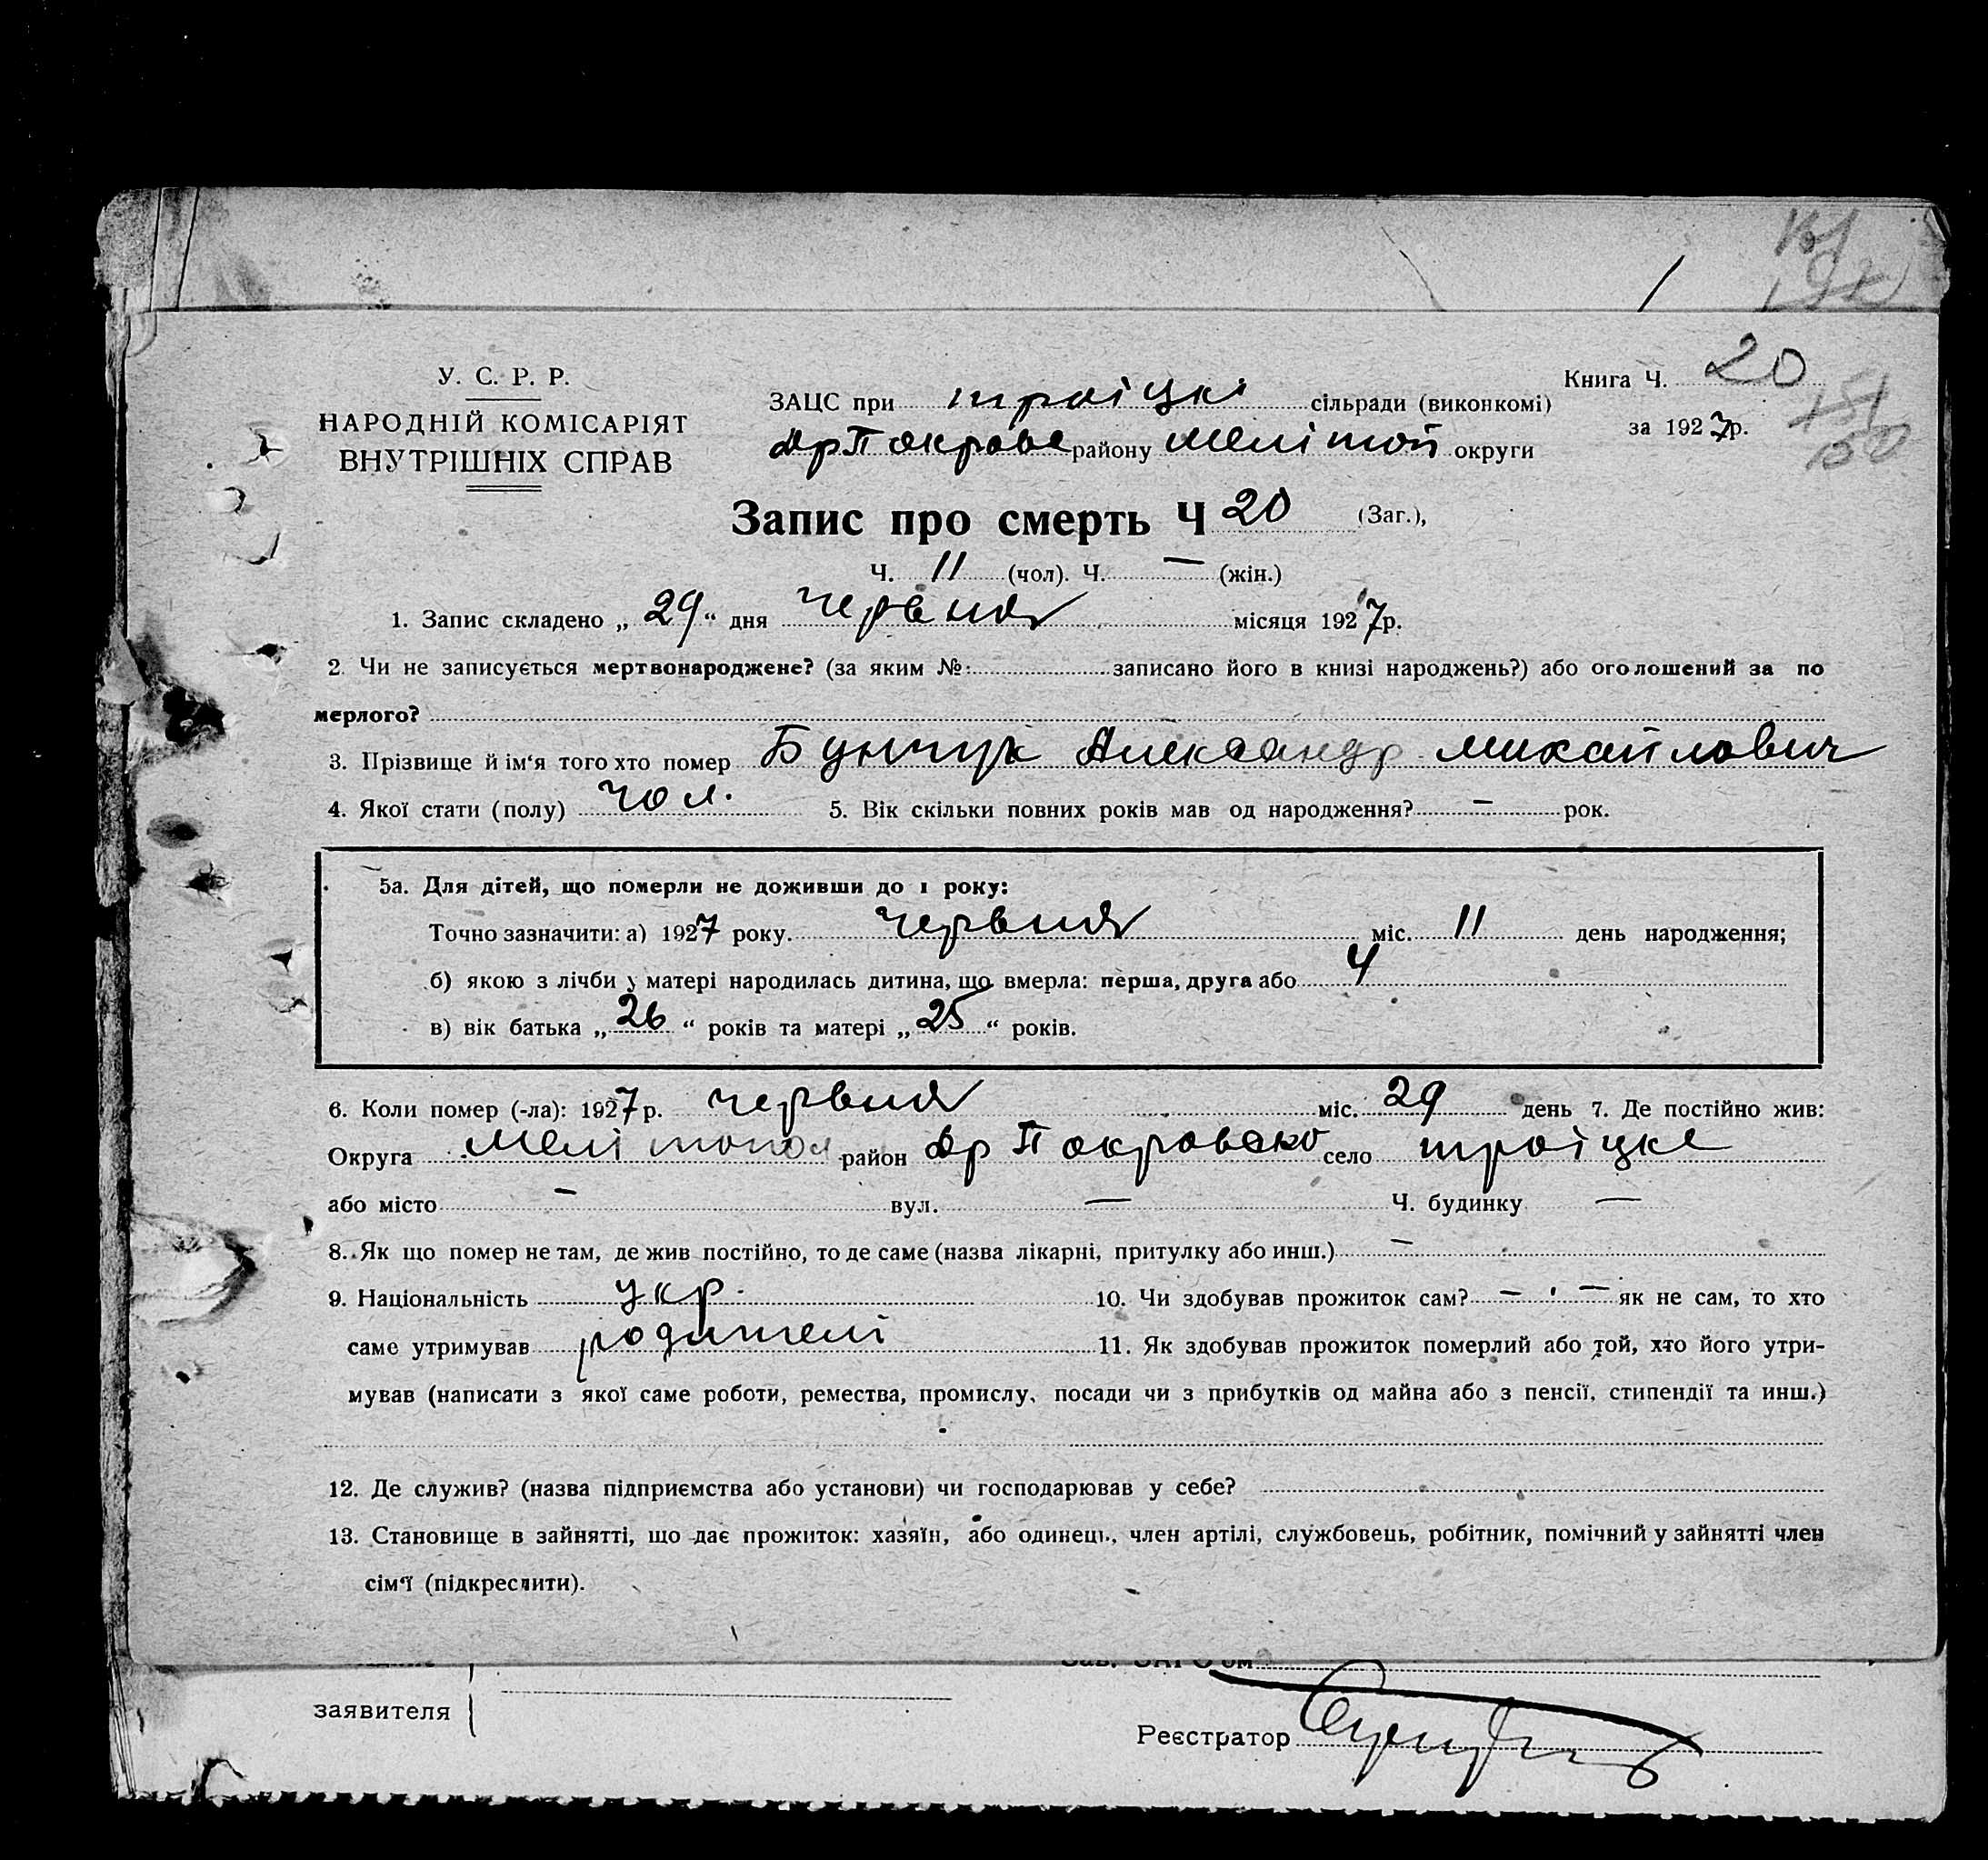 Книга Ч. 20
за 1927р.
У. С. Р. Р.
НАРОДНІЙ КОМІСАРІЯТ
ВНУТРІШНІХ СПРАВ
ЗАЦС при троіцкі сільради (виконкомі)
ДрПокровс району Мелітоп округи
Запис про смерть Ч 20 (Заг.),
Ч. 11 (чол). Ч. — (жін.)
1. Запис складено „ 29 “ дня червня місяця 1927р.
2. Чи не записується мертвонароджене? (за яким №: записано його в книзі народжень?) або оголошений за по
мерлого?
3. Прізвище й ім‘я того хто помер Бунчук Александр Михайлович
4. Якої стати (полу) чол. 5. Вік скільки повних років мав од народження? — рок.
5а. Для дітей, що померли не доживши до 1 року:
Точно зазначити: а) 1927 року. червня міс. 11 день народження;
б) якою з лічби у матері народилась дитина, що вмерла: перша, друга або 4
в) вік батька „ 26 “ років та матері „ 25 “ років.
6. Коли помер (-ла): 1927 р. червня міс. 29 день 7. Де постійно жив:
Округа Мелітопол район Др Покровско село троіцке
або місто — вул. — Ч. будинку —
8. Як що помер не там, де жив постійно, то де саме (назва лікарні, притулку або инш.) —
9. Національність укр. 10. Чи здобував прожиток сам? — як не сам, то хто
саме утримував родителі 11. Як здобував прожиток померлий або той, хто його утри-
мував (написати з якої саме роботи, ремества, промислу, посади чи з прибутків од майна або з пенсії, стипендії та инш.)
12. Де служив? (назва підприємства або установи) чи господарював у себе?
13. Становище в зайнятті, що дає прожиток: хазяїн, або одинець, член артілі, службовець, робітник, помічний у зайнятті член
сім‘ї (підкреслити).
заявителя
Реєстратор